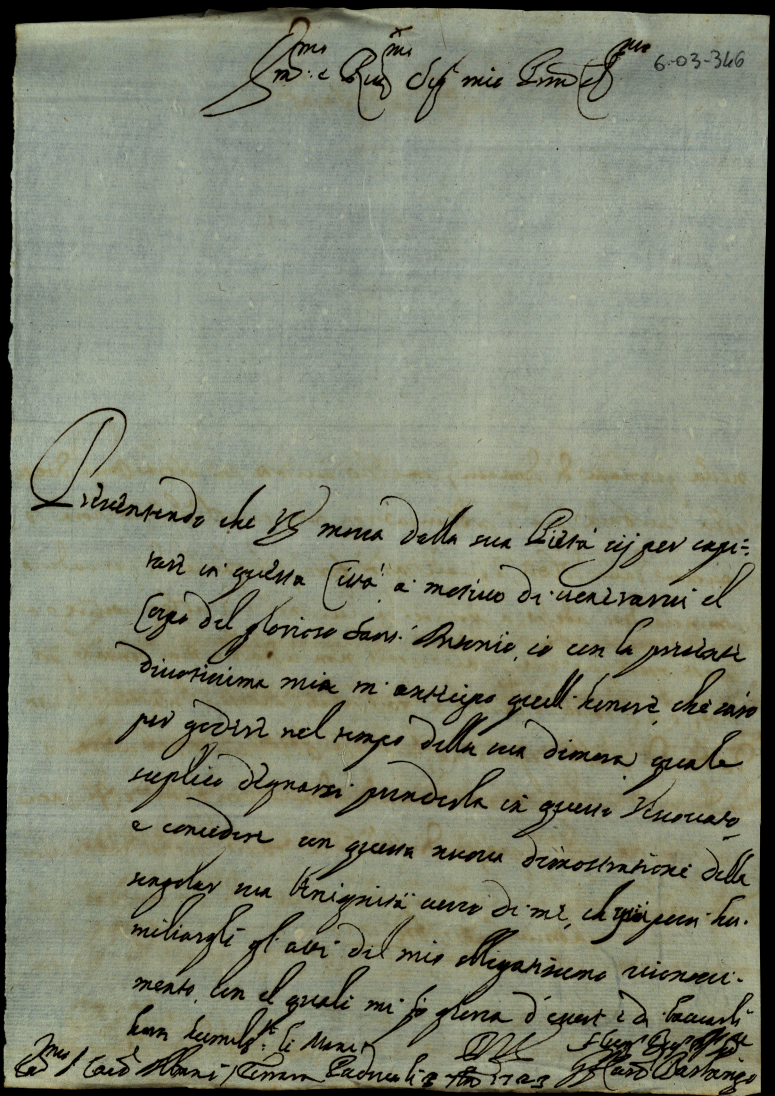 Em.mo e Rev.mo Sig.r mio P.ron Col.mo
6-03-346
Presentendo che VE mossa dalla sua Pietà sij per capi=
tare in questa Città à motivo di venerarvi el
Corpo del glorioso Sant' Antonio, io con la presente
divotissima mia m'anticipo quell' honore, che sarò
per godere nel tempo della sua dimora quale
suplico degnarsi prenderla in questo Vescovato,
e concedere con questa nuova dimostratione della
singolar sua benignità verso di me, che
miliargli gl'atti del mio obligatissimo riconosci=
mento, con el quale mi fò gloria d'esser e di bacciarli
hum humilm.te le Mani
Em.mo S. Card. Albani Padova li 1723
Card. Barbarigo